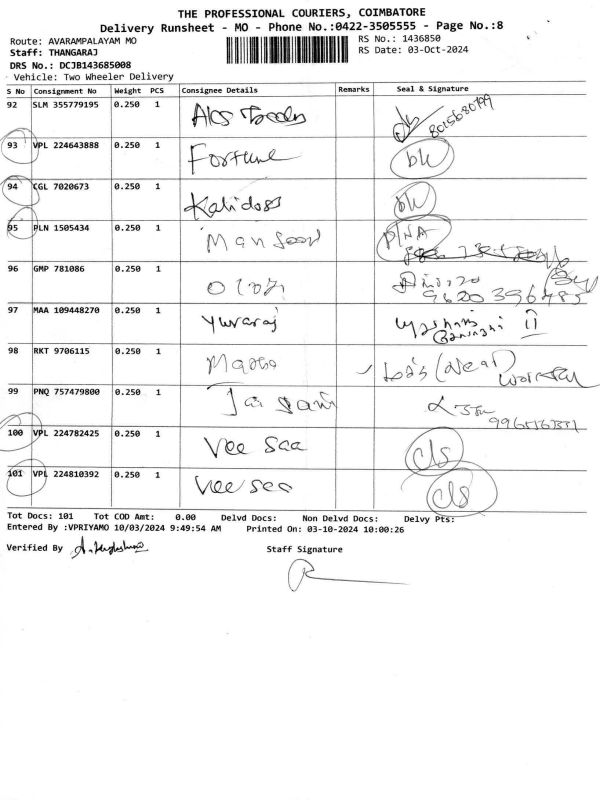 THE PROFESSIONAL COURIERS, COIMBATORE
Delivery Runsheet - MO - Phone No.:0422-3505555 - Page No.:8
Route: AVARAMPALAYAM MO RS No.: 1436850
Staff: THANGARAJ RS Date: 03-Oct-2024
DRS No.: DCJB143685008
Vehicle: Two Wheeler Delivery
S No Consignment No Weight PCS Consignee Details Remarks Seal & Signature
92 SLM 355779195 0.250 1
93 VPL 224643888 0.250 1 Fortune
94 CGL 7020673 0.250 1 Kalidoss
95 PLN 1505434 0.250 1 Mansoor
96 GMP 781086 0.250 1
97 MAA 109448270 0.250 1 Yuvaraj
98 RKT 9706115 0.250 1
99 PNQ 757479800 0.250 1 Jai
100 VPL 224782425 0.250 1 Vee See cls
101 VPL 224810392 0.250 1 Vee See cls
Tot Docs: 101 Tot COD Amt: 0.00 Delvd Docs: Non Delvd Docs: Delvy Pts:
Entered By :VPRIYAMO 10/03/2024 9:49:54 AM Printed On: 03-10-2024 10:00:26
Verified By
Staff Signature